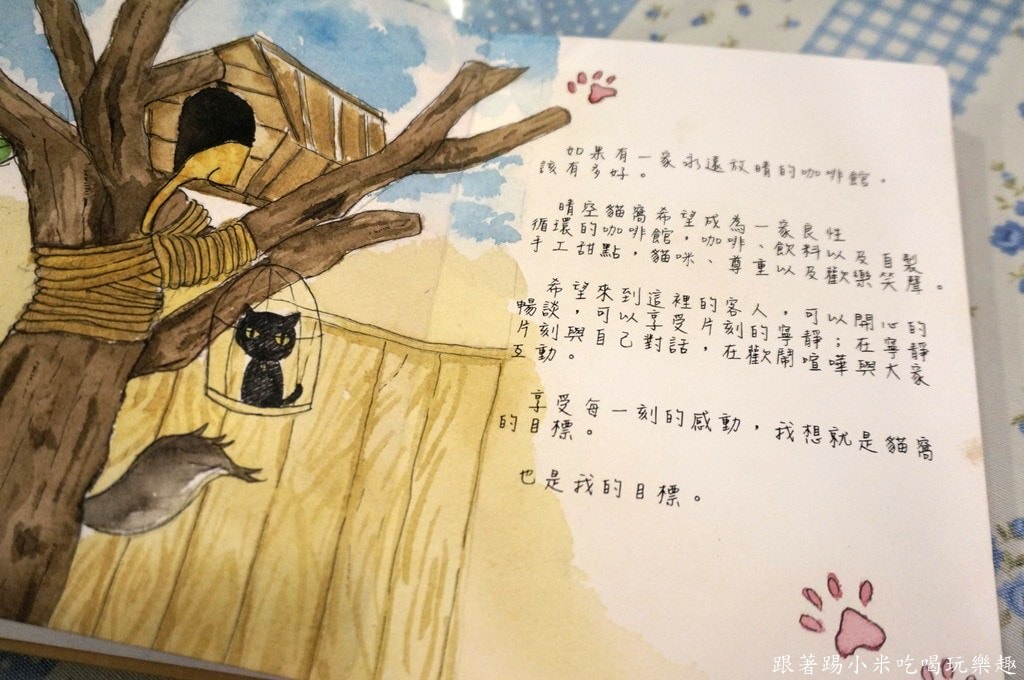 如果有一家永遠放晴的咖啡館，
該有多好。
晴空貓窩希望成為一家良性
循環的咖啡館，咖啡、飲料以及自製
手工甜點，貓咪、尊重以及歡樂笑聲。
希望來到這裡的客人，可以開心的
暢談，可以享受片刻的寧靜；在寧靜
片刻與自己對話，在歡鬧喧嘩與大家
互動。
享受每一刻的感動，我想就是貓窩
的目標。
也是我的目標。
跟著踢小米吃喝玩樂趣